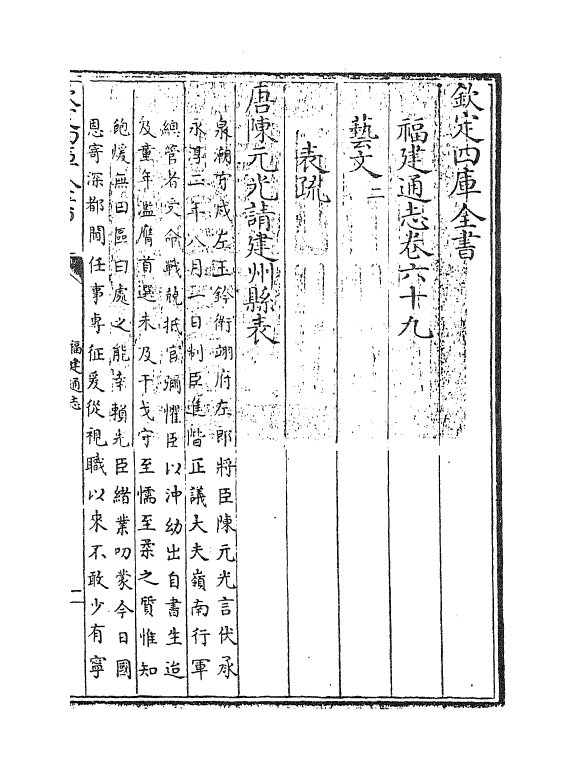 欽定四庫全書
福建通志卷六十九
藝文二
表疏
唐陳元光請建州縣表
泉潮守戍左玉鈐衛翊府左郎將臣陳元光言伏承
永淳二年八月一日制臣進階正議大夫嶺南行軍
總管者受命戰兢抵官彌懼臣以沖幼出自書生迨
及童年濫膺首選未及干戈守至懦至柔之質惟知
飽煖無日區曰處之能幸賴先臣緒業叨蒙今日國
恩寄深都閫任事專征爰從視職以來不敢少有寧
福建通志